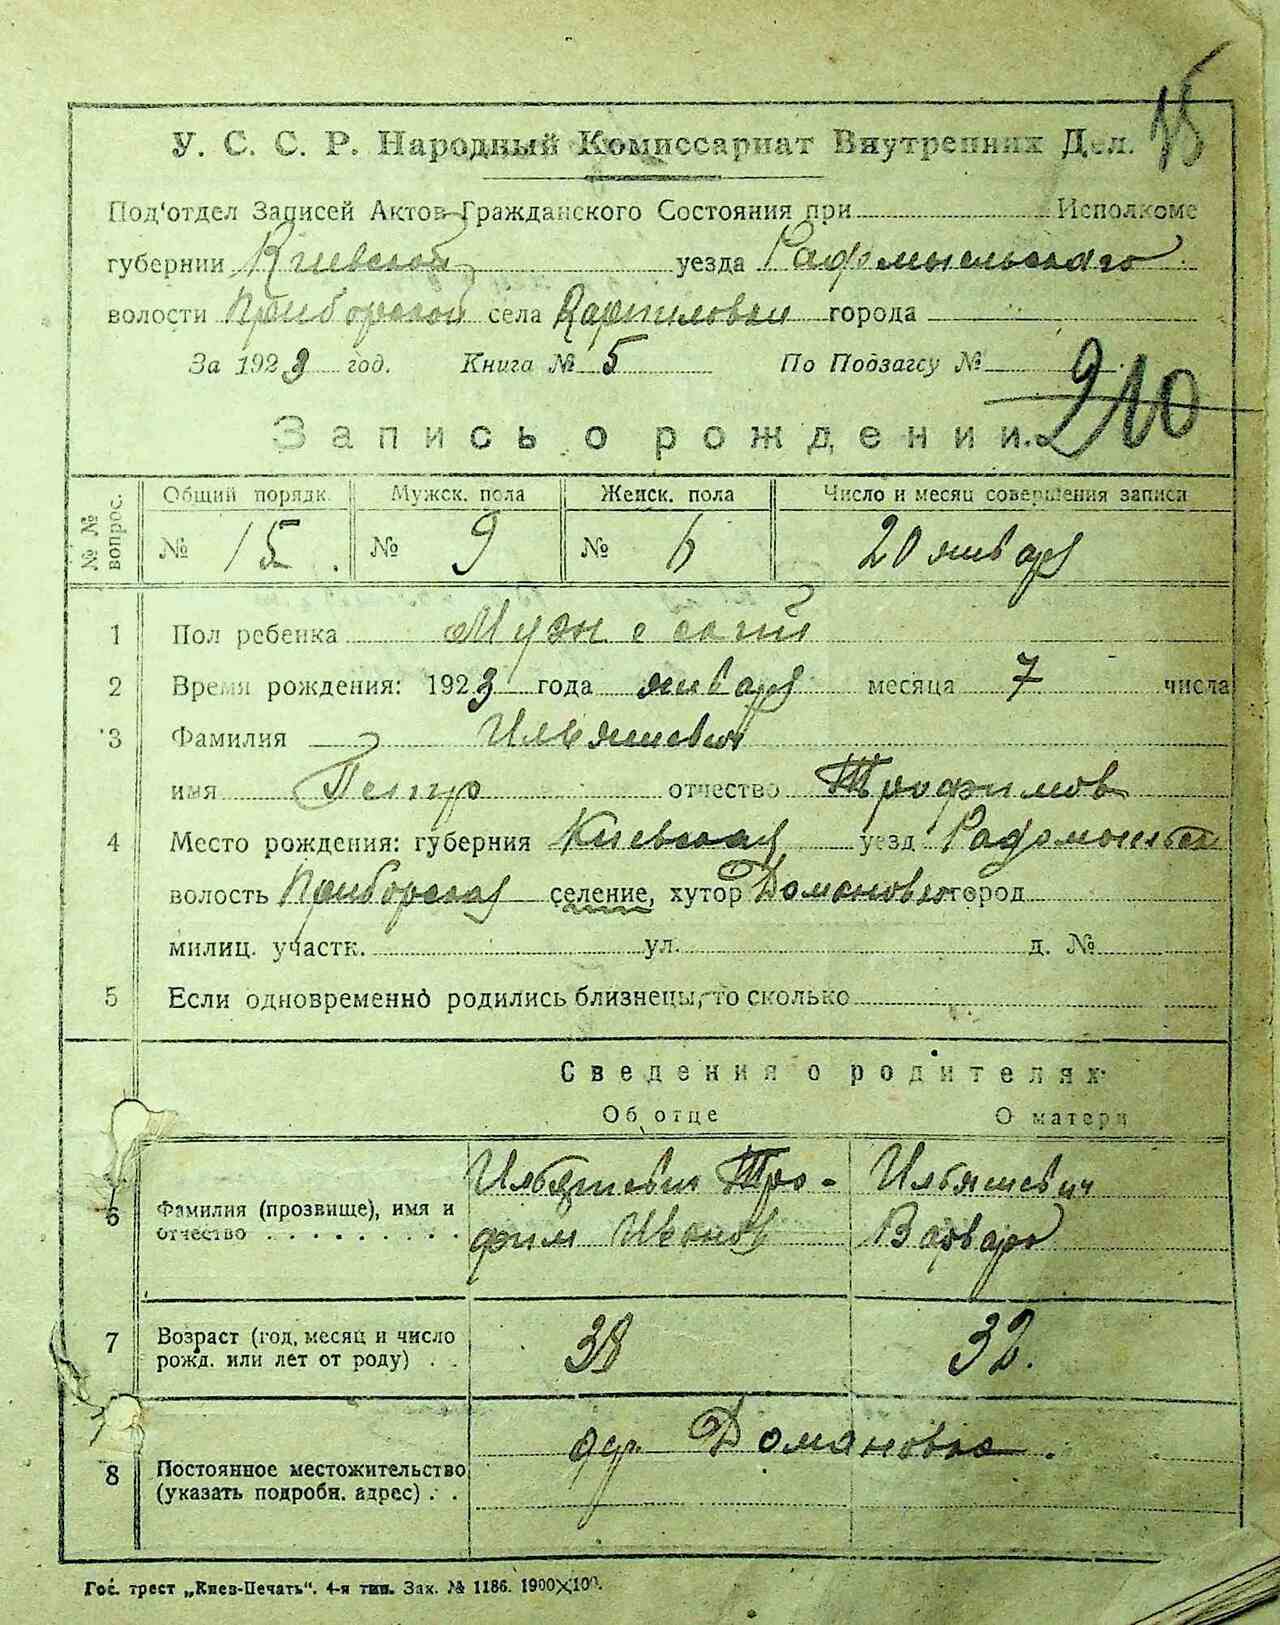 15
У. С. С. Р. Народный Комиссариат Внутренних Дел.
Под‘отдел Записей Актов Гражданского Состояния при Исполкоме
губернии Киевской уезда Радомысльского
волости Приборской села Карпиловки города
За 1923 год. Книга № 5 По Подзагсу №
210
Запись о рождении.
№ № вопрос. Общий порядк. Мужск. пола Женск. пола Число и месяц совершения записи
№ 15. № 9 № 6 20 января
1 Пол ребенка Мужеский
2 Время рождения: 1923 года января месяца 7 числа
3 Фамилия Ильяшевич
имя Петр отчество Трофимов
4 Место рождения: губерния Киевская уезд Радомысльск
волость Приборская селение, хутор Домановка город
милиц. участк. ул. д. №
5 Если одновременно родились близнецы, то сколько
Сведения о родителях
Об отце О матери
6 Фамилия (прозвище), имя и отчество Ильяшевич Тро-
фим Иванов
Ильяшевич
Варвара
7 Возраст (год, месяц и число
рожд. или лет от роду) 38 32.
8 Постоянное местожительство
(указать подробн. адрес) дер. Домановка.
Гос. трест „Киев-Печать“. 4-я тип. Зак. № 1186. 1900×100.